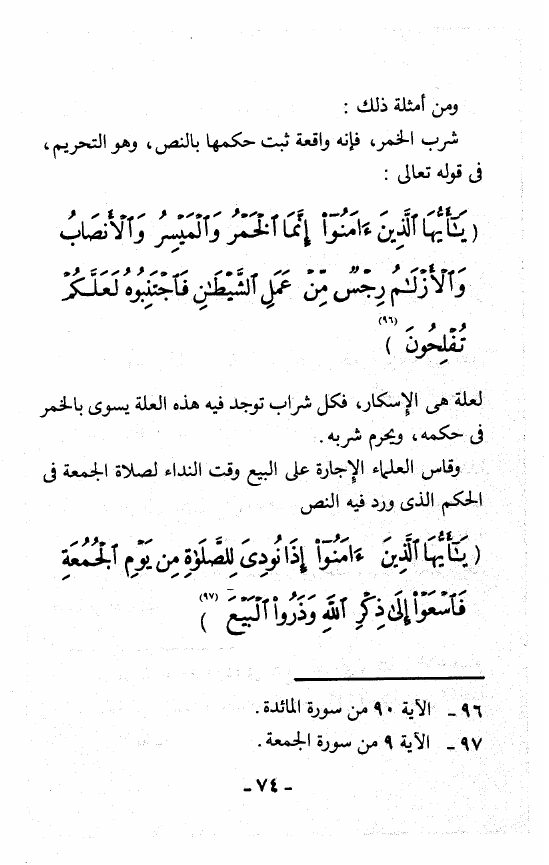 ومن أمثلة ذلك :
شرب الخمر، فإنه واقعة ثبت حكمها بالنص، وهو التحريم،
فى قوله تعالى :
( يَٰٓأَيُّهَا ٱلَّذِينَ ءَامَنُوٓا۟ إِنَّمَا ٱلْخَمْرُ وَٱلْمَيْسِرُ وَٱلْأَنصَابُ
وَٱلْأَزْلَٰمُ رِجْسٌ مِّنْ عَمَلِ ٱلشَّيْطَٰنِ فَٱجْتَنِبُوهُ لَعَلَّكُمْ
تُفْلِحُونَ (٩٦) )
لعلة هى الإسكار، فكل شراب توجد فيه هذه العلة يسوى بالخمر
فى حكمه، ويحرم شربه.
وقاس العلماء الإجارة على البيع وقت النداء لصلاة الجمعة فى
الحكم الذى ورد فيه النص
( يَٰٓأَيُّهَا ٱلَّذِينَ ءَامَنُوٓا۟ إِذَا نُودِىَ لِلصَّلَوٰةِ مِن يَوْمِ ٱلْجُمُعَةِ
فَٱسْعَوْا۟ إِلَىٰ ذِكْرِ ٱللَّهِ وَذَرُوا۟ ٱلْبَيْعَ (٩٧) )
٩٦ ـ الآية ٩٠ من سورة المائدة.
٩٧ ـ الآية ٩ من سورة الجمعة.
- ٧٤ -